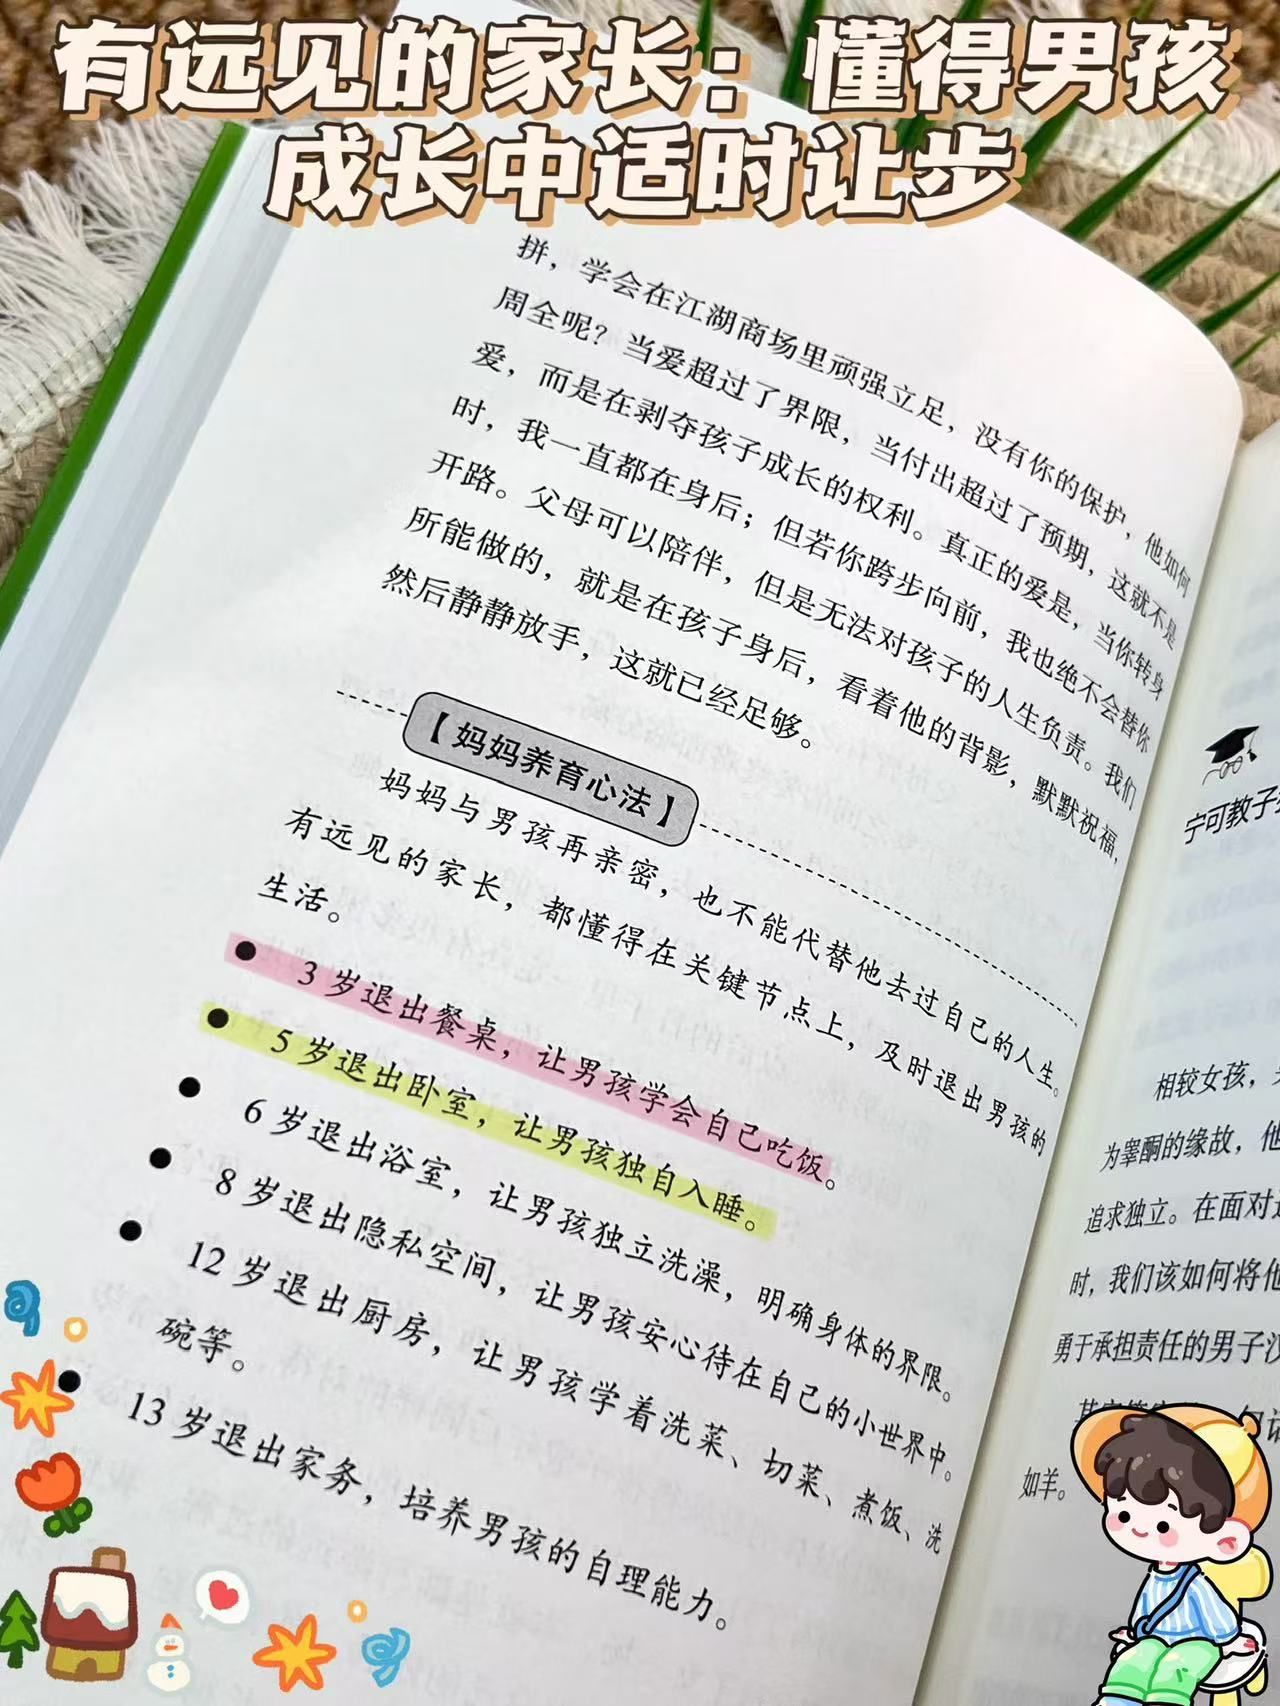 有远见的家长：懂得男孩
成长中适时让步
拼，学会在江湖商场里顽强立足，没有你的保护，他如何
周全呢？当爱超过了界限，当付出超过了预期，这就不是
爱，而是在剥夺孩子成长的权利。真正的爱是，当你转身
时，我一直都在身后；但若你跨步向前，我也绝不会替你
开路。父母可以陪伴，但是无法对孩子的人生负责。我们
所能做的，就是在孩子身后，看着他的背影，默默祝福，
然后静静放手，这就已经足够。
【妈妈养育心法】
妈妈与男孩再亲密，也不能代替他去过自己的人生。
有远见的家长，都懂得在关键节点上，及时退出男孩的
生活。
● 3岁退出餐桌，让男孩学会自己吃饭。
● 5岁退出卧室，让男孩独自入睡。
● 6岁退出浴室，让男孩独立洗澡，明确身体的界限。
● 8岁退出隐私空间，让男孩安心待在自己的小世界中。
● 12岁退出厨房，让男孩学着洗菜、切菜、煮饭、洗
碗等。
● 13岁退出家务，培养男孩的自理能力。
宁可教子
相较女孩，
为睾酮的缘故，他
追求独立。在面对
时，我们该如何将他
勇于承担责任的男子汉
如羊。